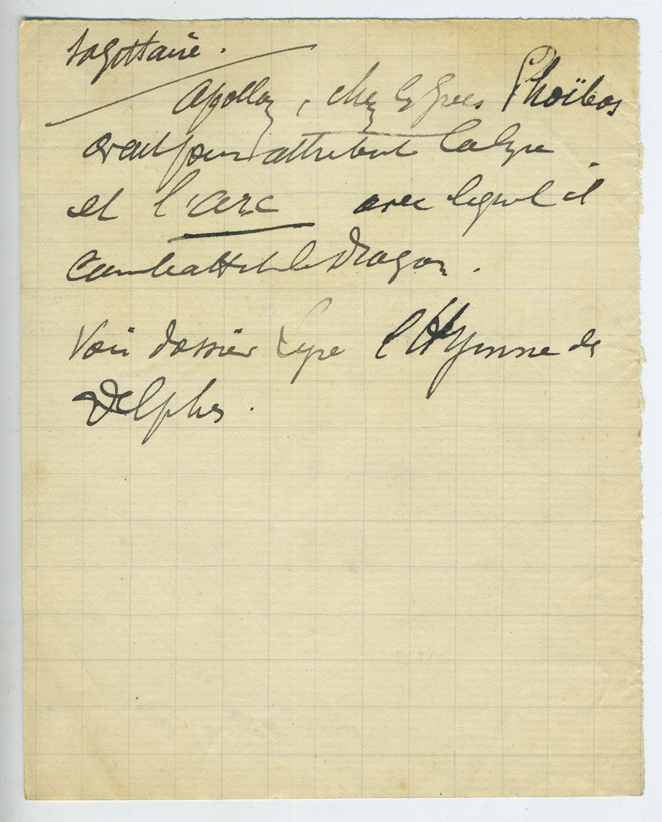 Sagittaire.
Apollon, chez les Grecs Phoïbos
avait pour attribut la lyre
et l'arc avec lequel il
combattit le Dragon.
Voir dossier Lyre l'Hymne de
Delphes.